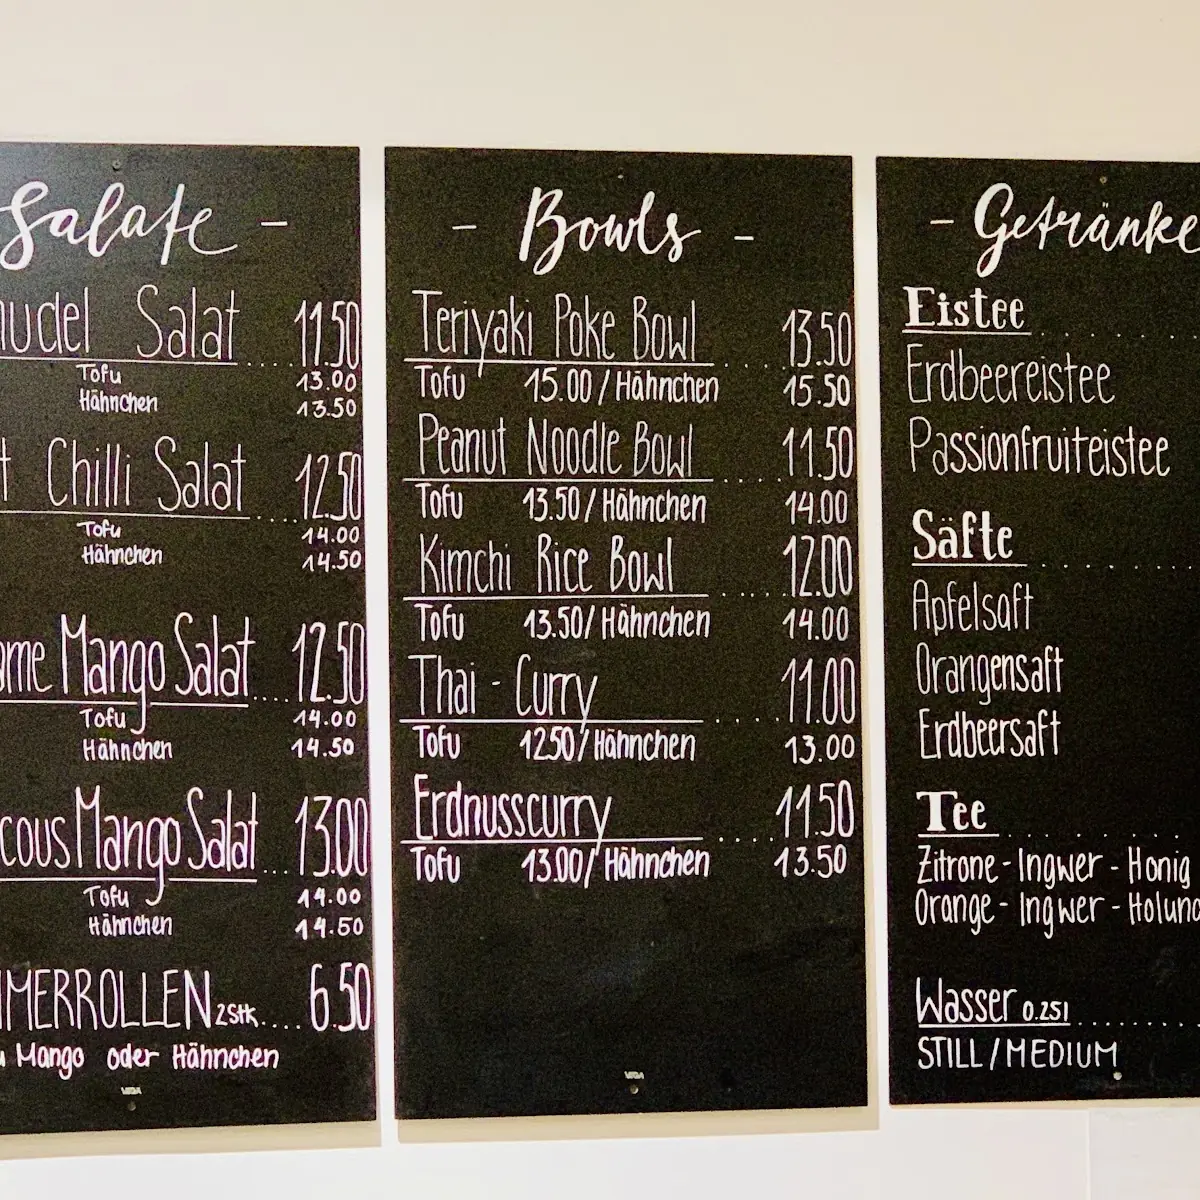 Salate -
Salat 11.50
Tofu 13.00
Hähnchen 13.50
Chilli Salat 12.50
Tofu 14.00
Hähnchen 14.50
Mango Salat 12.50
Tofu 14.00
Hähnchen 14.50
Mango Salat 13.00
Tofu 14.00
Hähnchen 14.50
2 Stk. 6.50
Mango oder Hähnchen
VEGA
- Bowls -
Teriyaki Poke Bowl 13.50
Tofu 15.00 / Hähnchen 15.50
Peanut Noodle Bowl 11.50
Tofu 13.50 / Hähnchen 14.00
Kimchi Rice Bowl 12.00
Tofu 13.50 / Hähnchen 14.00
Thai - Curry 11.00
Tofu 12.50 / Hähnchen 13.00
Erdnusscurry 11.50
Tofu 13.00 / Hähnchen 13.50
VEGA
- Getränke
Eistee
Erdbeereistee
Passionfruiteistee
Säfte
Apfelsaft
Orangensaft
Erdbeersaft
Tee
Zitrone - Ingwer - Honig
Orange - Ingwer -
Wasser 0.25l
STILL / MEDIUM